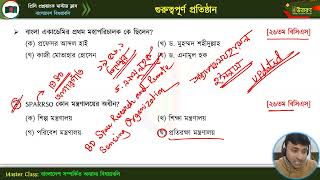 গুরুত্বপূর্ণ প্রতিষ্ঠান
বাংলা একাডেমির প্রথম মহাপরিচালক কে ছিলেন?
[২৬তম বিসিএস]
(ক) প্রফেসর আব্দুল হাই
(খ) ড. মুহম্মদ শহীদুল্লাহ
(গ) কাজী মোতাহার হোসেন
(ঘ) ড. এনামুল হক
Updated
SPARRSO কোন মন্ত্রণালয়ের অধীন?
[২৬তম বিসিএস]
(ক) শিল্প মন্ত্রণালয়
(খ) শিক্ষা মন্ত্রণালয়
(গ) পরিবেশ মন্ত্রণালয়
প্রতিরক্ষা মন্ত্রণালয়
BD Space Research and Remote
Sensing Organization
Master Class: বাংলাদেশ সম্পর্কিত অন্যান্য বিষয়াবলি